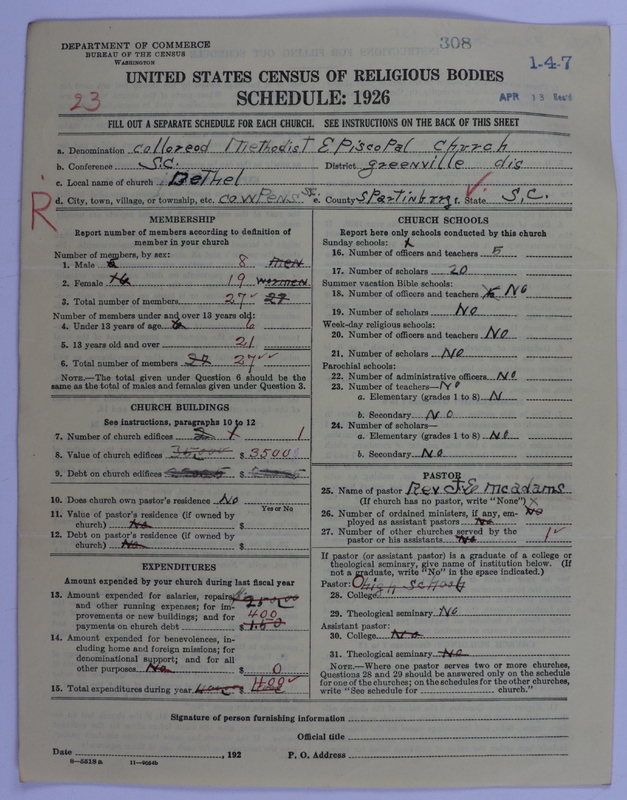 308
DEPARTMENT OF COMMERCE
BUREAU OF THE CENSUS
WASHINGTON
1-4-7
UNITED STATES CENSUS OF RELIGIOUS BODIES
SCHEDULE: 1926
23
APR 13
FILL OUT A SEPARATE SCHEDULE FOR EACH CHURCH. SEE INSTRUCTIONS ON THE BACK OF THIS SHEET
a. Denomination Collored Methodist EPiscoPal Church
b. Conference S.C. District greenville dis
c. Local name of church Bethel
d. City, town, village, or township, etc. cowPens e. County SPartinburg f. State S.C.
R
MEMBERSHIP
Report number of members according to definition of
member in your church
Number of members, by sex:
1. Male 8 men
2. Female 19 wormen
3. Total number of members 27 27
Number of members under and over 13 years old:
4. Under 13 years of age 6
5. 13 years old and over 21
6. Total number of members 27 27
NOTE.—The total given under Question 6 should be the
same as the total of males and females given under Question 3.
CHURCH BUILDINGS
See instructions, paragraphs 10 to 12
7. Number of church edifices 1
8. Value of church edifices $ 3500
9. Debt on church edifices $
10. Does church own pastor's residence No
Yes or No
11. Value of pastor's residence (if owned by
church) No $
12. Debt on pastor's residence (if owned by
church) No $
EXPENDITURES
Amount expended by your church during last fiscal year
13. Amount expended for salaries, repairs,
and other running expenses; for im-
provements or new buildings; and for 400
payments on church debt $ 150
14. Amount expended for benevolences, in-
cluding home and foreign missions; for
denominational support; and for all
other purposes No $ 0
15. Total expenditures during year $ 400
CHURCH SCHOOLS
Report here only schools conducted by this church
Sunday schools:
16. Number of officers and teachers 5
17. Number of scholars 20
Summer vacation Bible schools:
18. Number of officers and teachers No
19. Number of scholars No
Week-day religious schools:
20. Number of officers and teachers No
21. Number of scholars No
Parochial schools:
22. Number of administrative officers No
23. Number of teachers— No
a. Elementary (grades 1 to 8) N
b. Secondary No
24. Number of scholars—
a. Elementary (grades 1 to 8) No
b. Secondary No
PASTOR
25. Name of pastor Rev J.E mcadams
(If church has no pastor, write "None") X
26. Number of ordained ministers, if any, em- No
ployed as assistant pastors No
27. Number of other churches served by the
pastor or his assistants No 1
If pastor (or assistant pastor) is a graduate of a college or
theological seminary, give name of institution below. (If
not a graduate, write "No" in the space indicated.)
Pastor: O High School
28. College
29. Theological seminary No
Assistant pastor:
30. College No
31. Theological seminary No
NOTE.—Where one pastor serves two or more churches,
Questions 28 and 29 should be answered only on the schedule
for one of the churches; on the schedules for the other churches,
write "See schedule for church."
Signature of person furnishing information
Official title
Date , 192 P. O. Address
8—5518a 11—9054b